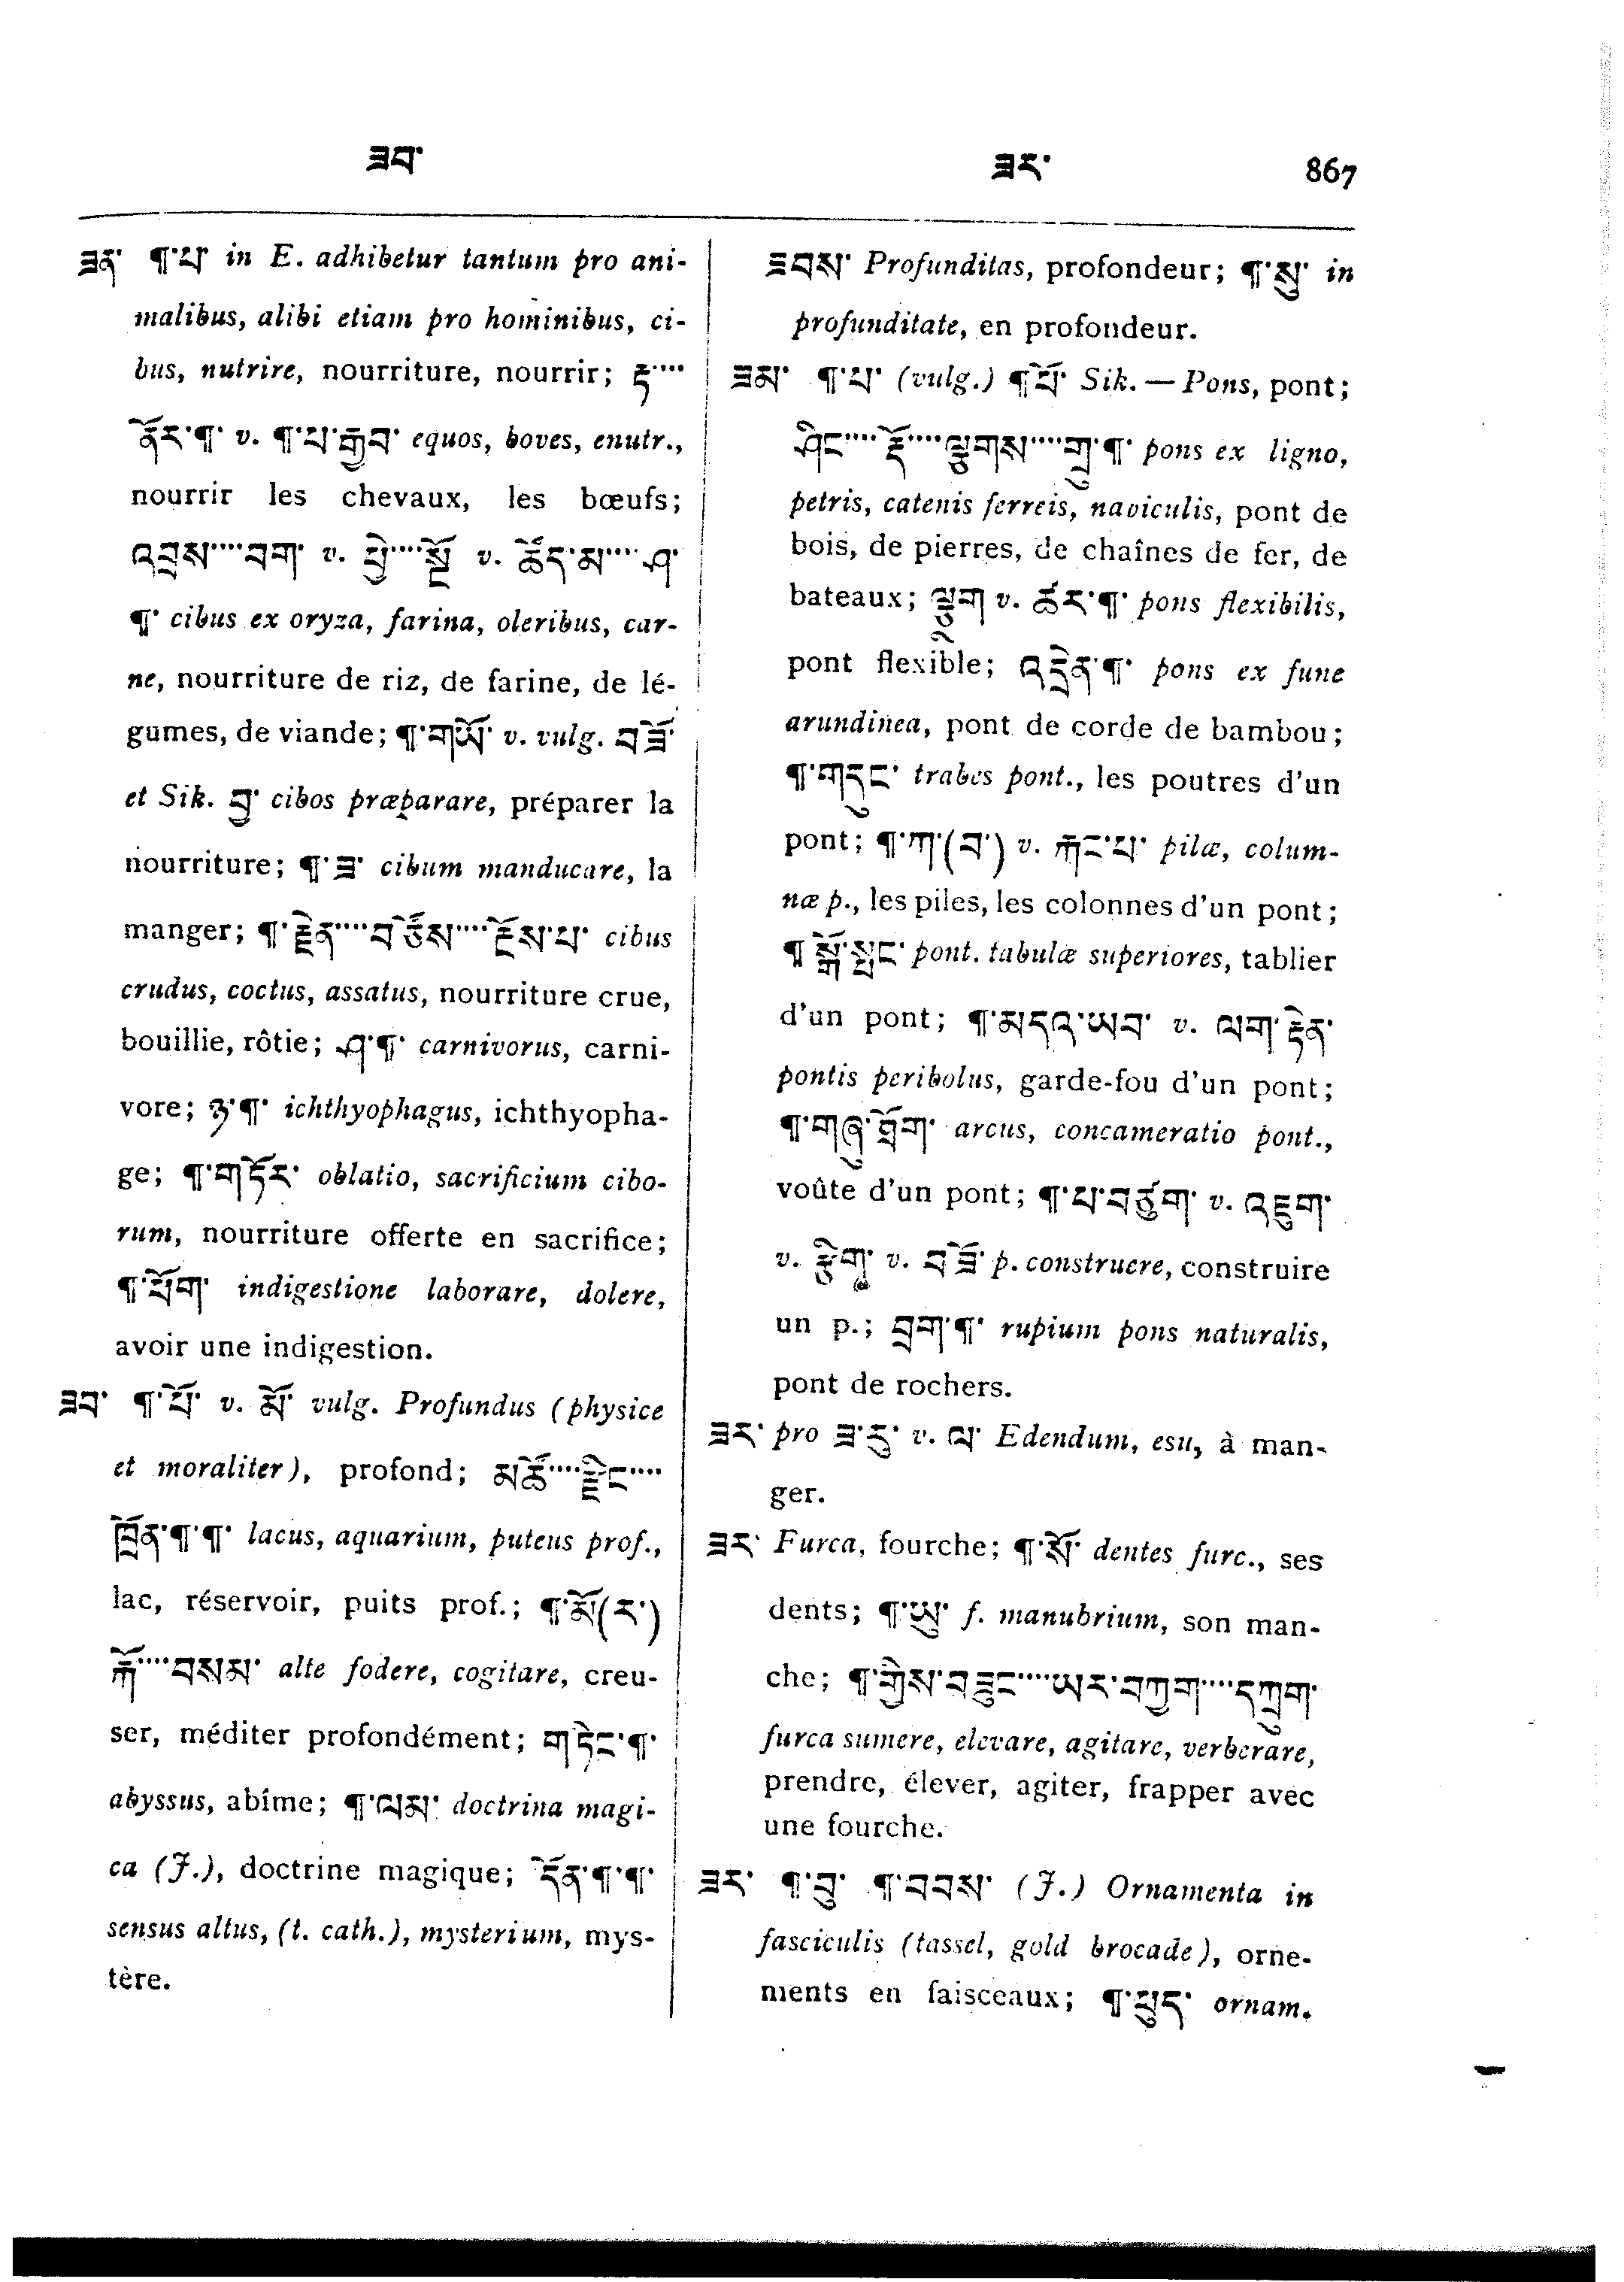 ཟབ་
ཟར་ 867
ཟན་ ¶་པ་ in E. adhibetur tantum pro ani-
malibus, alibi etiam pro hominibus, ci-
bus, nutrire, nourriture, nourrir; རྟ····
ནོར་¶་ v. ¶་པ་རྒྱབ་ equos, boves, enutr.,
nourrir les chevaux, les bœufs;
འབྲས····བག་ v. ཕྱེ····སྔོ v. ཚོད་མ····ཤ་
¶་ cibus ex oryza, farina, oleribus, car-
ne, nourriture de riz, de farine, de lé-
gumes, de viande; ¶་གཡོ་ v. vulg. བཟོ་
et Sik. བྱ་ cibos præparare, préparer la
nourriture; ¶་ཟ་ cibum manducare, la
manger; ¶་རྗེན····བཙོས····རྔོས་པ་ cibus
crudus, coctus, assatus, nourriture crue,
bouillie, rôtie; ཤ་¶་ carnivorus, carni-
vore; ཉ་¶་ ichthyophagus, ichthyopha-
ge; ¶་གཏོར་ oblatio, sacrificium cibo-
rum, nourriture offerte en sacrifice;
¶་ཕོག་ indigestione laborare, dolere,
avoir une indigestion.
ཟབ་ ¶་པོ་ v. མོ་ vulg. Profundus (physice
et moraliter), profond; མཚོ····རྫིང····
ཁྲོན་¶་¶་ lacus, aquarium, puteus prof.,
lac, réservoir, puits prof.; ¶་མོ(ར་)
རྐོ····བསམ་ alte fodere, cogitare, creu-
ser, méditer profondément; གཏེང་¶་
abyssus, abîme; ¶་ལམ་ doctrina magi-
ca (J.), doctrine magique; དོན་¶་¶་
sensus altus, (t. cath.), mysterium, mys-
tère.
ཟབས་ Profunditas, profondeur; ¶་སུ་ in
profunditate, en profondeur.
ཟམ་ ¶་པ་ (vulg.) ¶པོ་ Sik. — Pons, pont;
ཤིང····རྡོ····ལྕུགས····གྲུ་¶་ pons ex ligno,
petris, catenis ferreis, naviculis, pont de
bois, de pierres, de chaînes de fer, de
bateaux; ལྕུག v. ཚར་¶་ pons flexibilis,
pont flexible; འདྲེན་¶་ pons ex fune
arundinea, pont de corde de bambou;
¶་གདུང་ trabes pont., les poutres d'un
pont; ¶་ཀ་(བ་) v. རྐང་པ་ pilæ, colum-
næ p., les piles, les colonnes d'un pont;
¶ སྒོ་སྤང་ pont. tabulæ superiores, tablier
d'un pont; ¶་མདའ་ཡབ་ v. ལག་རྟེན་
pontis peribolus, garde-fou d'un pont;
¶་གཞུ་ཐོག་ arcus, concameratio pont.,
voûte d'un pont; ¶་པ་བཙུག་ v. འཛུག་
v. རྩིག་ v. བཟོ་ p. construere, construire
un p.; བྲག་¶་ rupium pons naturalis,
pont de rochers.
ཟར་ pro ཟ་རུ་ v. ལ་ Edendum, esu, à man-
ger.
ཟར་ Furca, fourche; ¶་སོ་ dentes furc., ses
dents; ¶་ཡུ་ f. manubrium, son man-
che; ¶་གྱིས་བཟུང····ཡར་བཀྱག····དཀྲུག་
furca sumere, elevare, agitare, verberare,
prendre, élever, agiter, frapper avec
une fourche.
ཟར་ ¶་བུ་ ¶་བབས་ (J.) Ornamenta in
fasciculis (tassel, gold brocade), orne-
ments en faisceaux; ¶་ཕུད་ ornam.